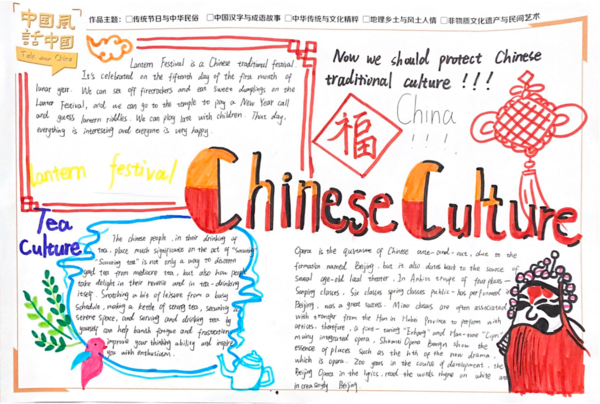 中国风
话中国
Talk about China
作品主题：□传统节日与中华民俗 □中国汉字与成语故事 □中华传统与文化精粹 □地理乡土与风土人情 □非物质文化遗产与民间艺术
Lantern Festival is a Chinese traditional festival.
It's celebrated on the fifteenth day of the first month of
lunar year. We can set off firecrackers and eat sweet dumplings on the
Festival, and we can go to the temple to pay a New Year call
and guess lantern riddles. We can play with children. That day,
everything is interesting and everyone is very happy.
lantern festival
Now we should protect Chinese
traditional culture!!!
China
!!!
福
Chinese Culture
Tea
Culture
The chinese people, in their drinking of
tea, place much significance on the act of "Savouring".
"Savouring tea" is not only a way to discern
good tea from mediocre tea, but also how people
take delight in their reverie and in tea-drinking
itself. Snatching a bit of leisure from a busy
schedule, making a kettle of strong tea, securing a
serene space, and serving and drinking tea by
yourself can help banish fatigue and frustration,
improve your thinking ability and inspire
you with enthusiasm.
Opera is the of Chinese due to the
formation named Beijing, but it also dates back to the source of
several age-old local theater. In troupe of four places
Six classes spring classes public has performed in
Beijing, was a great success. are often associated
with transfer from the Han in Hubei Province to perform with
artists, therefore, a fine-tuning and
many integrated opera, show the
essence of places such as the birth of the new drama,
which is opera. 200 years in the course of development, the
Beijing Opera in the lyrics, read the words rhyme on white and
increasingly Beijing.